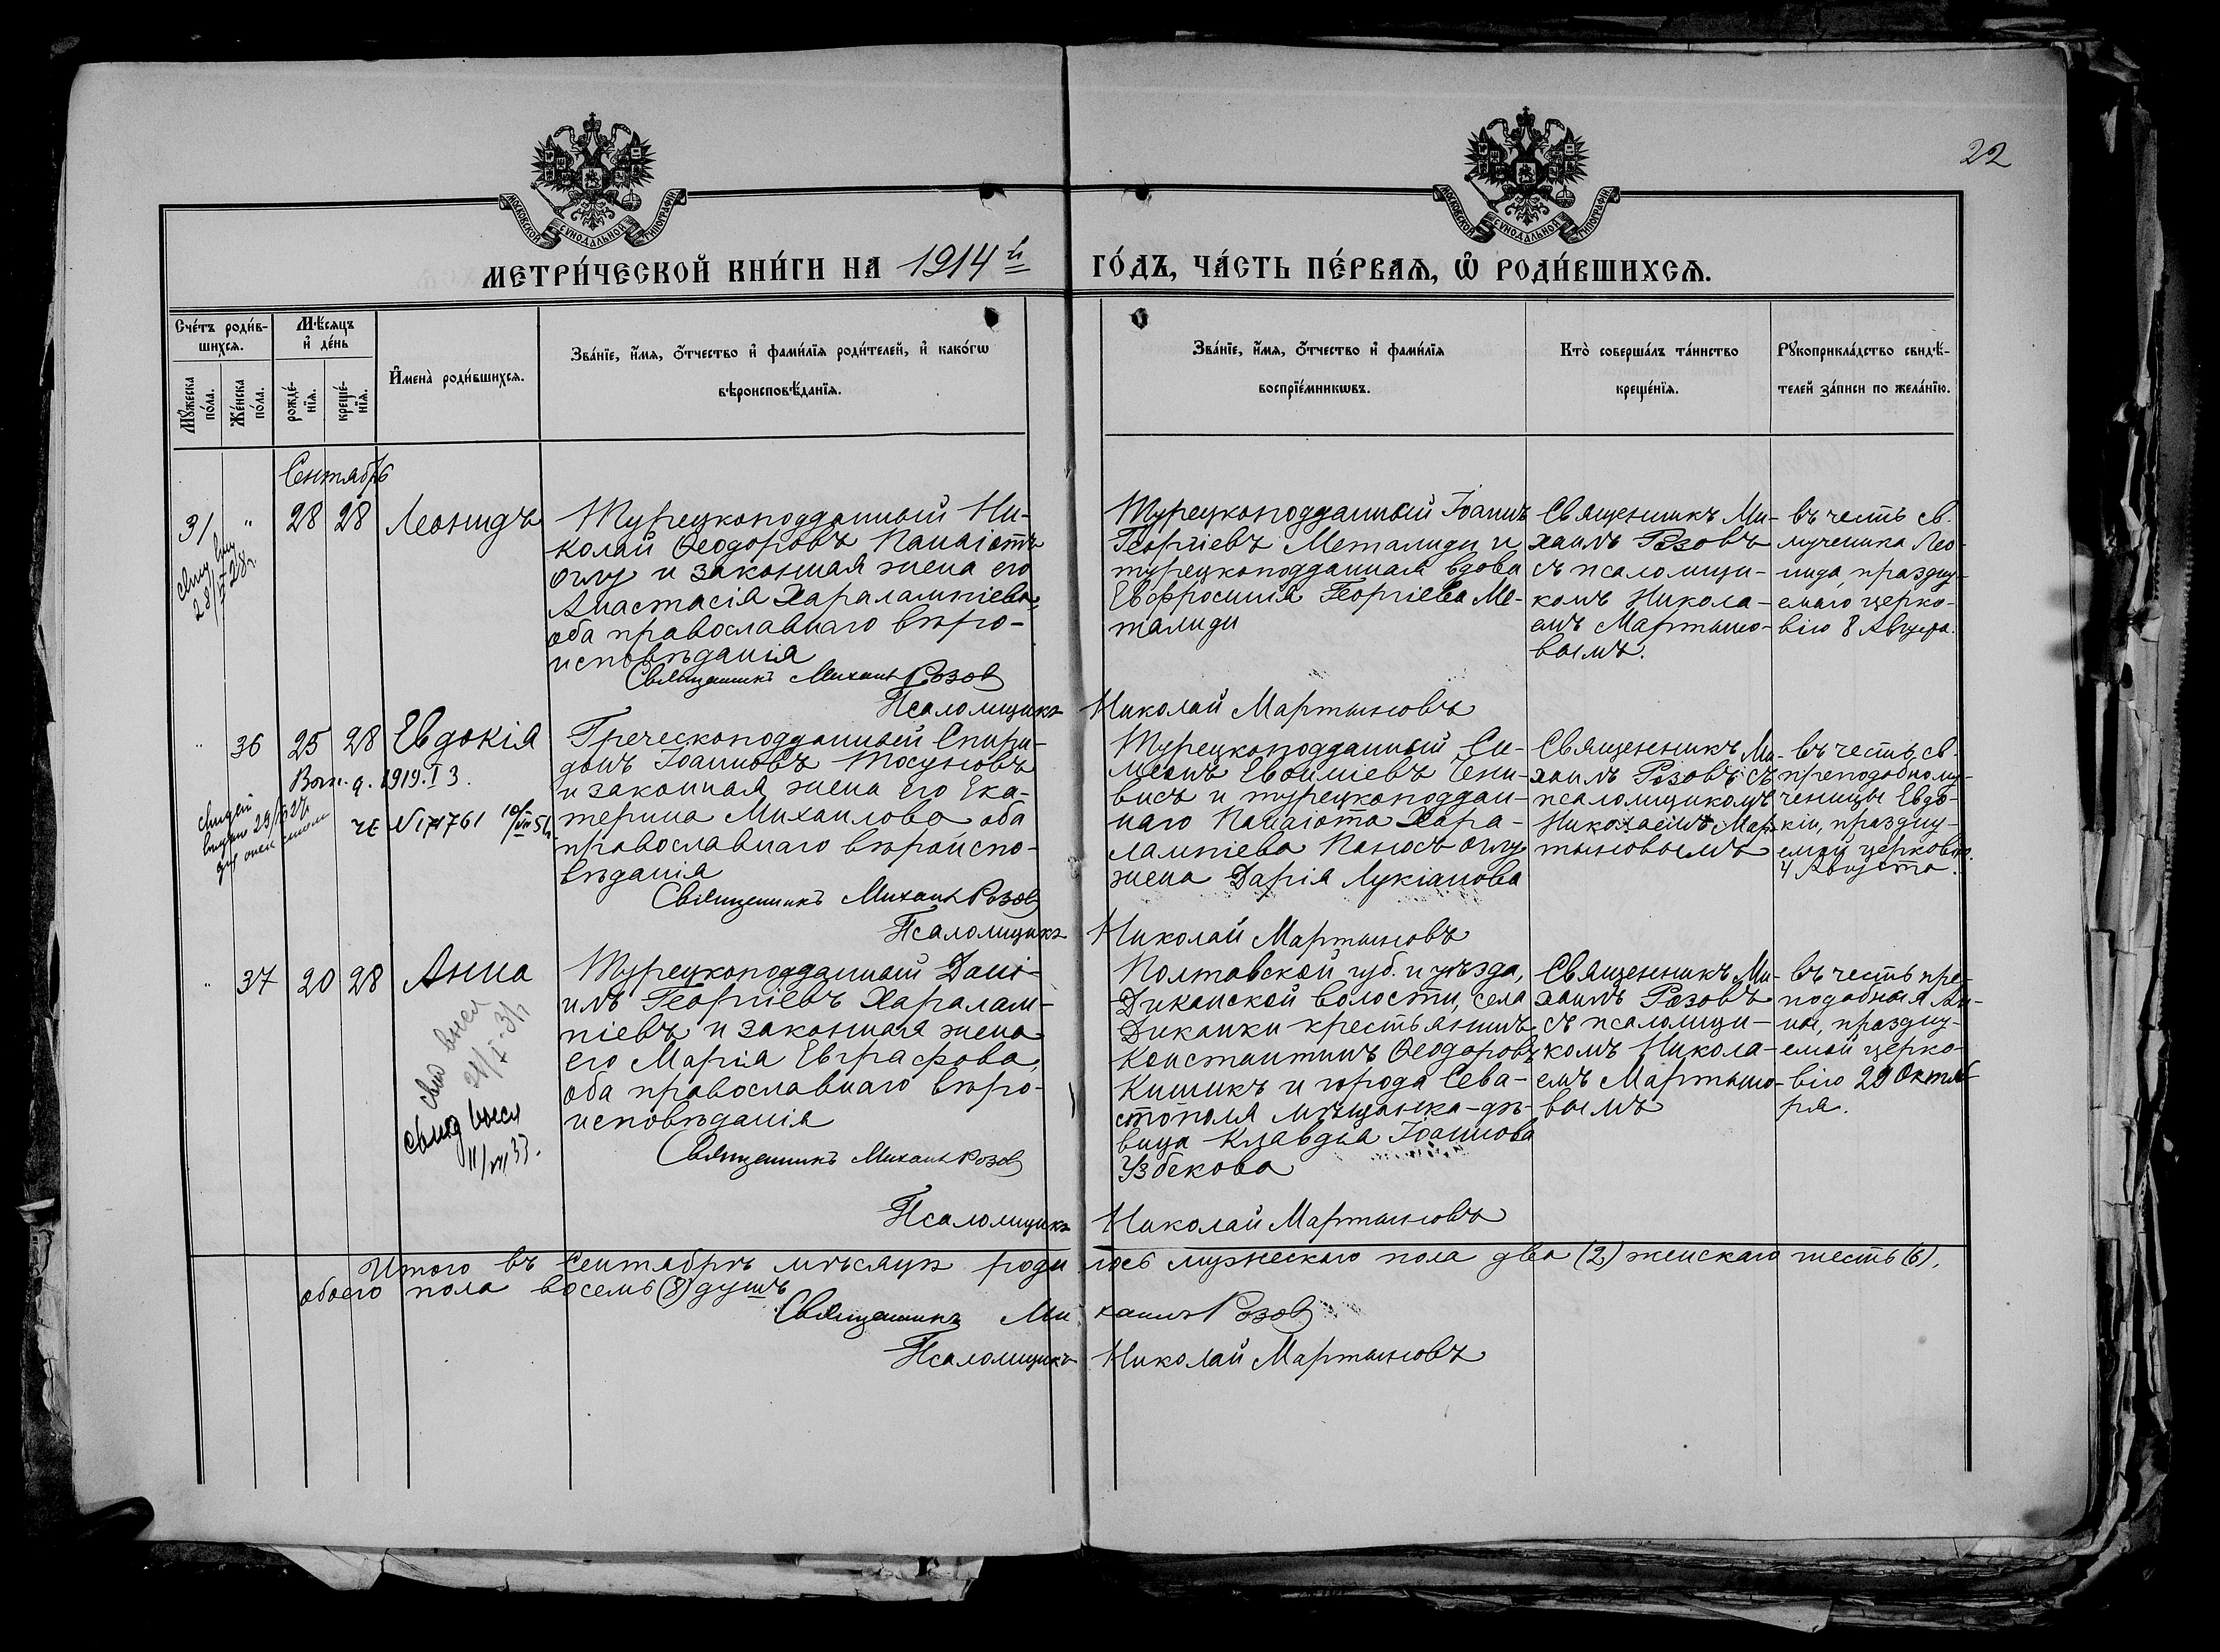 22
МОСКОВСКОЙ СѴНОДАЛЬНОЙ ТИПОГРАФІИ
МОСКОВСКОЙ СѴНОДАЛЬНОЙ ТИПОГРАФІИ
МЕТРИ́ЧЕСКОЙ КНИ́ГИ НА 1914й ГО́ДЪ, ЧА́СТЬ ПЕ́РВАѦ, Ѡ҆ РОДИ́ВШИХСѦ.
Сче́тъ роди́в-
шихсѧ.
Мꙋ́жеска
по́ла.
Же́нска
по́ла.
Мѣ́сѧцъ
и҆ де́нь
рожде́-
нїѧ.
креще́-
нїѧ.
И҆мена̀ роди́вшихсѧ.
Зва́нїе, и҆́мѧ, ѻ҆́тчество и҆ фами́лїѧ роди́телей, и҆ како́гѡ
вѣроисповѣ́данїѧ.
Зва́нїе, и҆́мѧ, ѻ҆́тчество и҆ фами́лїѧ
воспрїе́мникѡвъ.
Кто̀ соверша́лъ та́инство
креще́нїѧ.
Рꙋкоприкла́дство свидѣ́-
телей за́писи по жела́нїю.
Сентябрь
31 " 28 28 Леонидъ
28/IV 28г.
Турецкоподданный Ни-
колай Ѳеодоровъ Панаіотъ
оглу и законная жена его
Анастасія Харалампіева,
оба православнаго вѣро-
исповѣданія
Турецкоподданный Іоаннъ
Георгіевъ Металиди и
турецкоподданная вдова
Евфросинія Георгіева Ме-
талиди
Священникъ Ми-
хаилъ Розовъ
съ псаломщи-
комъ Никола-
емъ Мартыно-
вымъ.
въ честь св.
мученика Лео-
нида, праздну-
емаго церко-
вію 8 Августа.
Священникъ Михаилъ Розов
Псаломщикъ Николай Мартыновъ
" 36 25 28 Евдокія
1919. I 3.
ЧЕ № 171761 10/VII 51
Греческоподданный Спири-
донъ Іоанновъ Тосуновъ
и законная жена его Ека-
терина Михаилова оба
православнаго вѣроиспо-
вѣданія
Турецкоподданный Си-
меонъ Евѳиміевъ Чени-
висъ и турецкоподдан-
наго Панаіота Хара-
лампіева Паносъ оглу
жена Дарія Лукіанова
Священникъ Ми-
хаилъ Розовъ съ
псаломщикомъ
Николаемъ Мар-
тыновымъ
въ честь св.
преподобному-
ченицы Евдо-
кіи, праздну-
емой церковію
4 Августа.
Священникъ Михаилъ Розов
Псаломщикъ Николай Мартыновъ
" 37 20 28 Анна
свид высл
свид высл
11/VII 33.
Турецкоподданный Дані-
илъ Георгіевъ Харалам-
піевъ и законная жена
его Марія Евграфова,
оба православнаго вѣро-
исповѣданія
Полтавской губ. и уѣзда,
Диканской волости, села
Диканки крестьянинъ
Константинъ Ѳеодоровъ
Кишикъ и города Сева-
стополя мѣщанка-дѣ-
вица Клавдія Іоаннова
Узбекова
Священникъ Ми-
хаилъ Розовъ
съ псаломщи-
комъ Никола-
емъ Мартыно-
вымъ
въ честь пре-
подобныя Ан-
ны, праздну-
емой церко-
вію 29 Октяб-
ря.
Священникъ Михаилъ Розов
Псаломщикъ Николай Мартыновъ
Итого въ Сентябрѣ мѣсяцѣ родилось мужескаго пола два (2) женскаго шесть (6),
обоего пола восемь (8) душъ
Священникъ Михаилъ Розов
Псаломщикъ Николай Мартыновъ